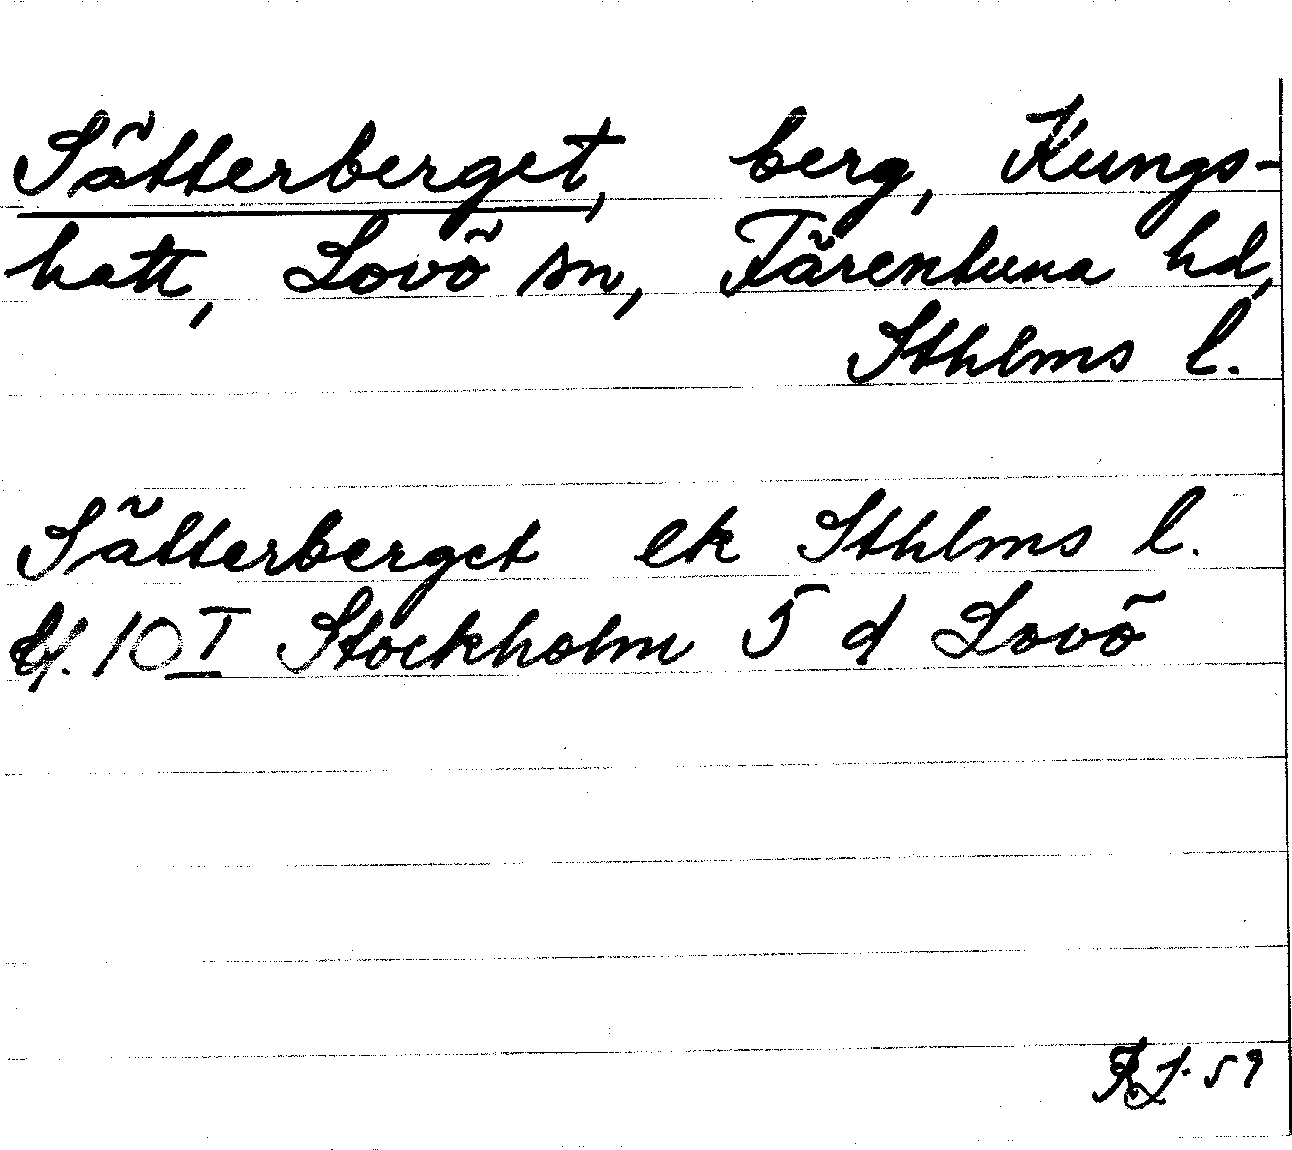 Sätterberget, berg, Kungs-
hatt, Lovö sn, Färentuna hd,
Sthlms l.
Sätterberget ek Sthlms l.
bl. 10 I Stockholm 5 d Lovö
59